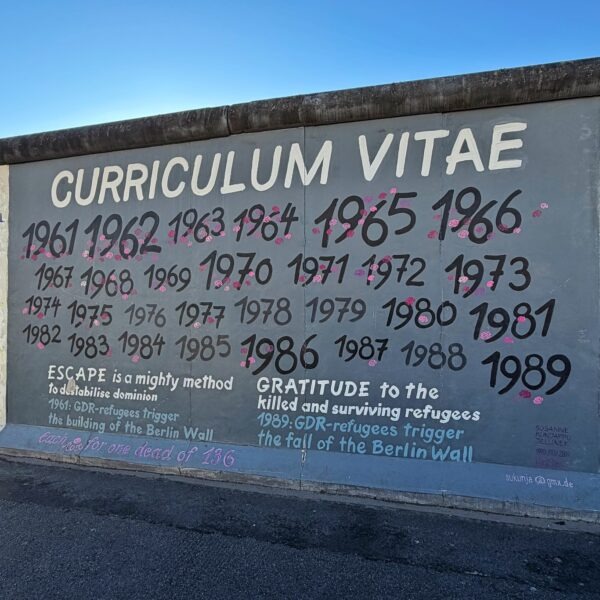 CURRICULUM VITAE
1961 1962 1963 1964 1965 1966
1967 1968 1969 1970 1971 1972 1973
1974 1975 1976 1977 1978 1979 1980 1981
1982 1983 1984 1985 1986 1987 1988 1989
ESCAPE is a mighty method
to destabilise dominion
1961: GDR-refugees trigger
the building of the Berlin Wall
GRATITUDE to the
killed and surviving refugees
1989: GDR-refugees trigger
the fall of the Berlin Wall
each for one dead of 136
SUSANNE
KUNJAPPU
JELLINEK
sukunja@gmx.de